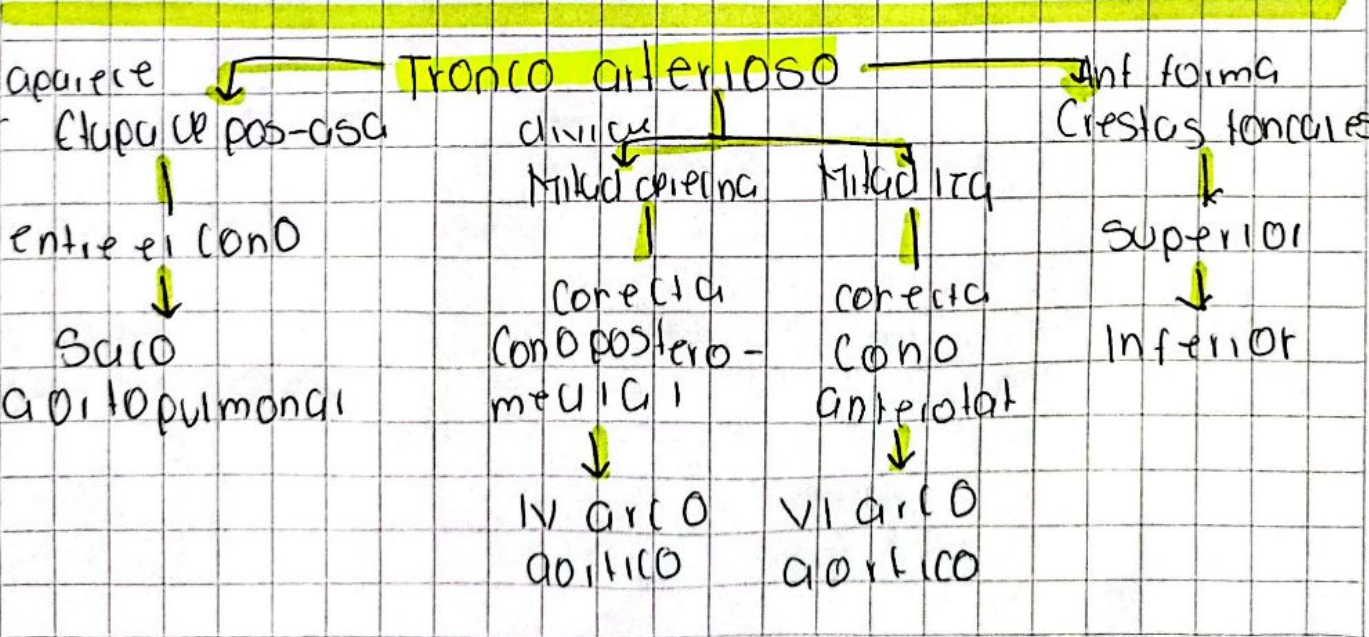 Tronco arterioso
aparece
Etapa de pos-asa
entre el cono
Saco
aortopulmonal
divide
Mitad derecha
conecta
Cono postero-
medial
IV arco
aortico
Mitad izq
conecta
cono
anterolat
VI arco
aortico
Ant forma
Crestas toncales
superior
Inferior